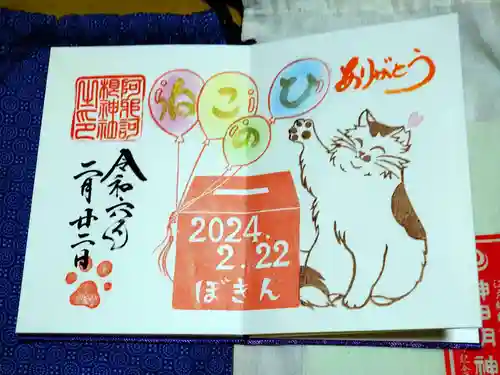 ねこのひ
ありがとう
阿邪訶
根神社
之印
令和六年
二月廿二日
2024.
2.22
ぼきん